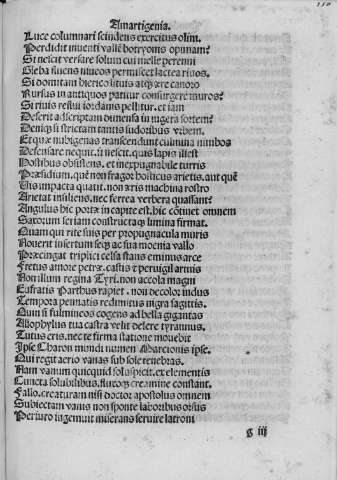 Amartigenia.
Luce columnari scindens exercitus olim.
Perdidit inventi vallē botryonis opimam?
Si nescit versare solum cui melle perenni
Gleba fluens niveos permiscet lactea rivos.
Si domitam hierico lituis atqȝ ere canoro
Rursus in antiquos patitur consurgere muros?
Si rivis reflui iordanis pellitur. et iam
Deserit adscriptam dimensa in iugera sortem?
Deniqȝ si strictam tantis sudoribus vrbem.
Et quæ nubigenas transcendunt culmina nimbos
Defensare nequit. si nescit. quis lapis illest
Hostibus obsistens. et inexpugnabile turris
Præsidium. quē non fragor hosticus arietis. aut quē
Vis impacta quatit. non æris machina rostro
Arietat insiliens. nec ferrea verbera quassant?
Angulus hic portæ in capite est. hic cōtinet omnem
Saxorum seriam constructaqȝ limina firmat.
Quam qui rite suis per propugnacula muris
Noverit insertum seqȝ ac sua moenia vallo
Præcingat triplici celsa stans eminus arce
Fretus amore petræ. castis et pervigil armis
Non illum regina Tyri. non accola magni
Eufratis Parthus rapiet. non decolor indus
Tempora pennatis redimitus nigra sagittis.
Quin si fulmineos cogens ad bella gigantas
Allophylus tua castra velit delere tyrannus.
Tutus eris. nec te firma statione movebit
Ipse Charon mundi numen Marcionis ipse.
Qui regit aerio vanas sub sole tenebras.
Nam vanum quicquid sol aspicit. ex elementis
Cuncta solubilibus. fluxoqȝ creamine constant.
Fallo. creaturam nisi doctor apostolus omnem
Subiectam vanis non sponte laboribus orsus
Periuro ingemuit miserans servire latroni
g iij